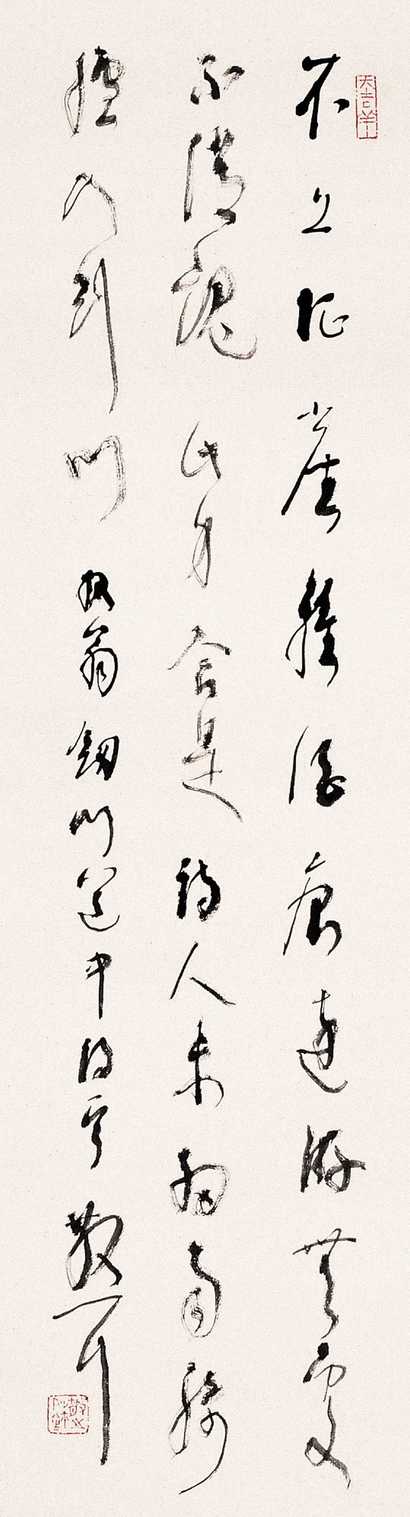 大吉羊
衣上征塵雜酒痕遠游無處
不消魂此身合是詩人未細雨騎
驢入劍門放翁劍門道中